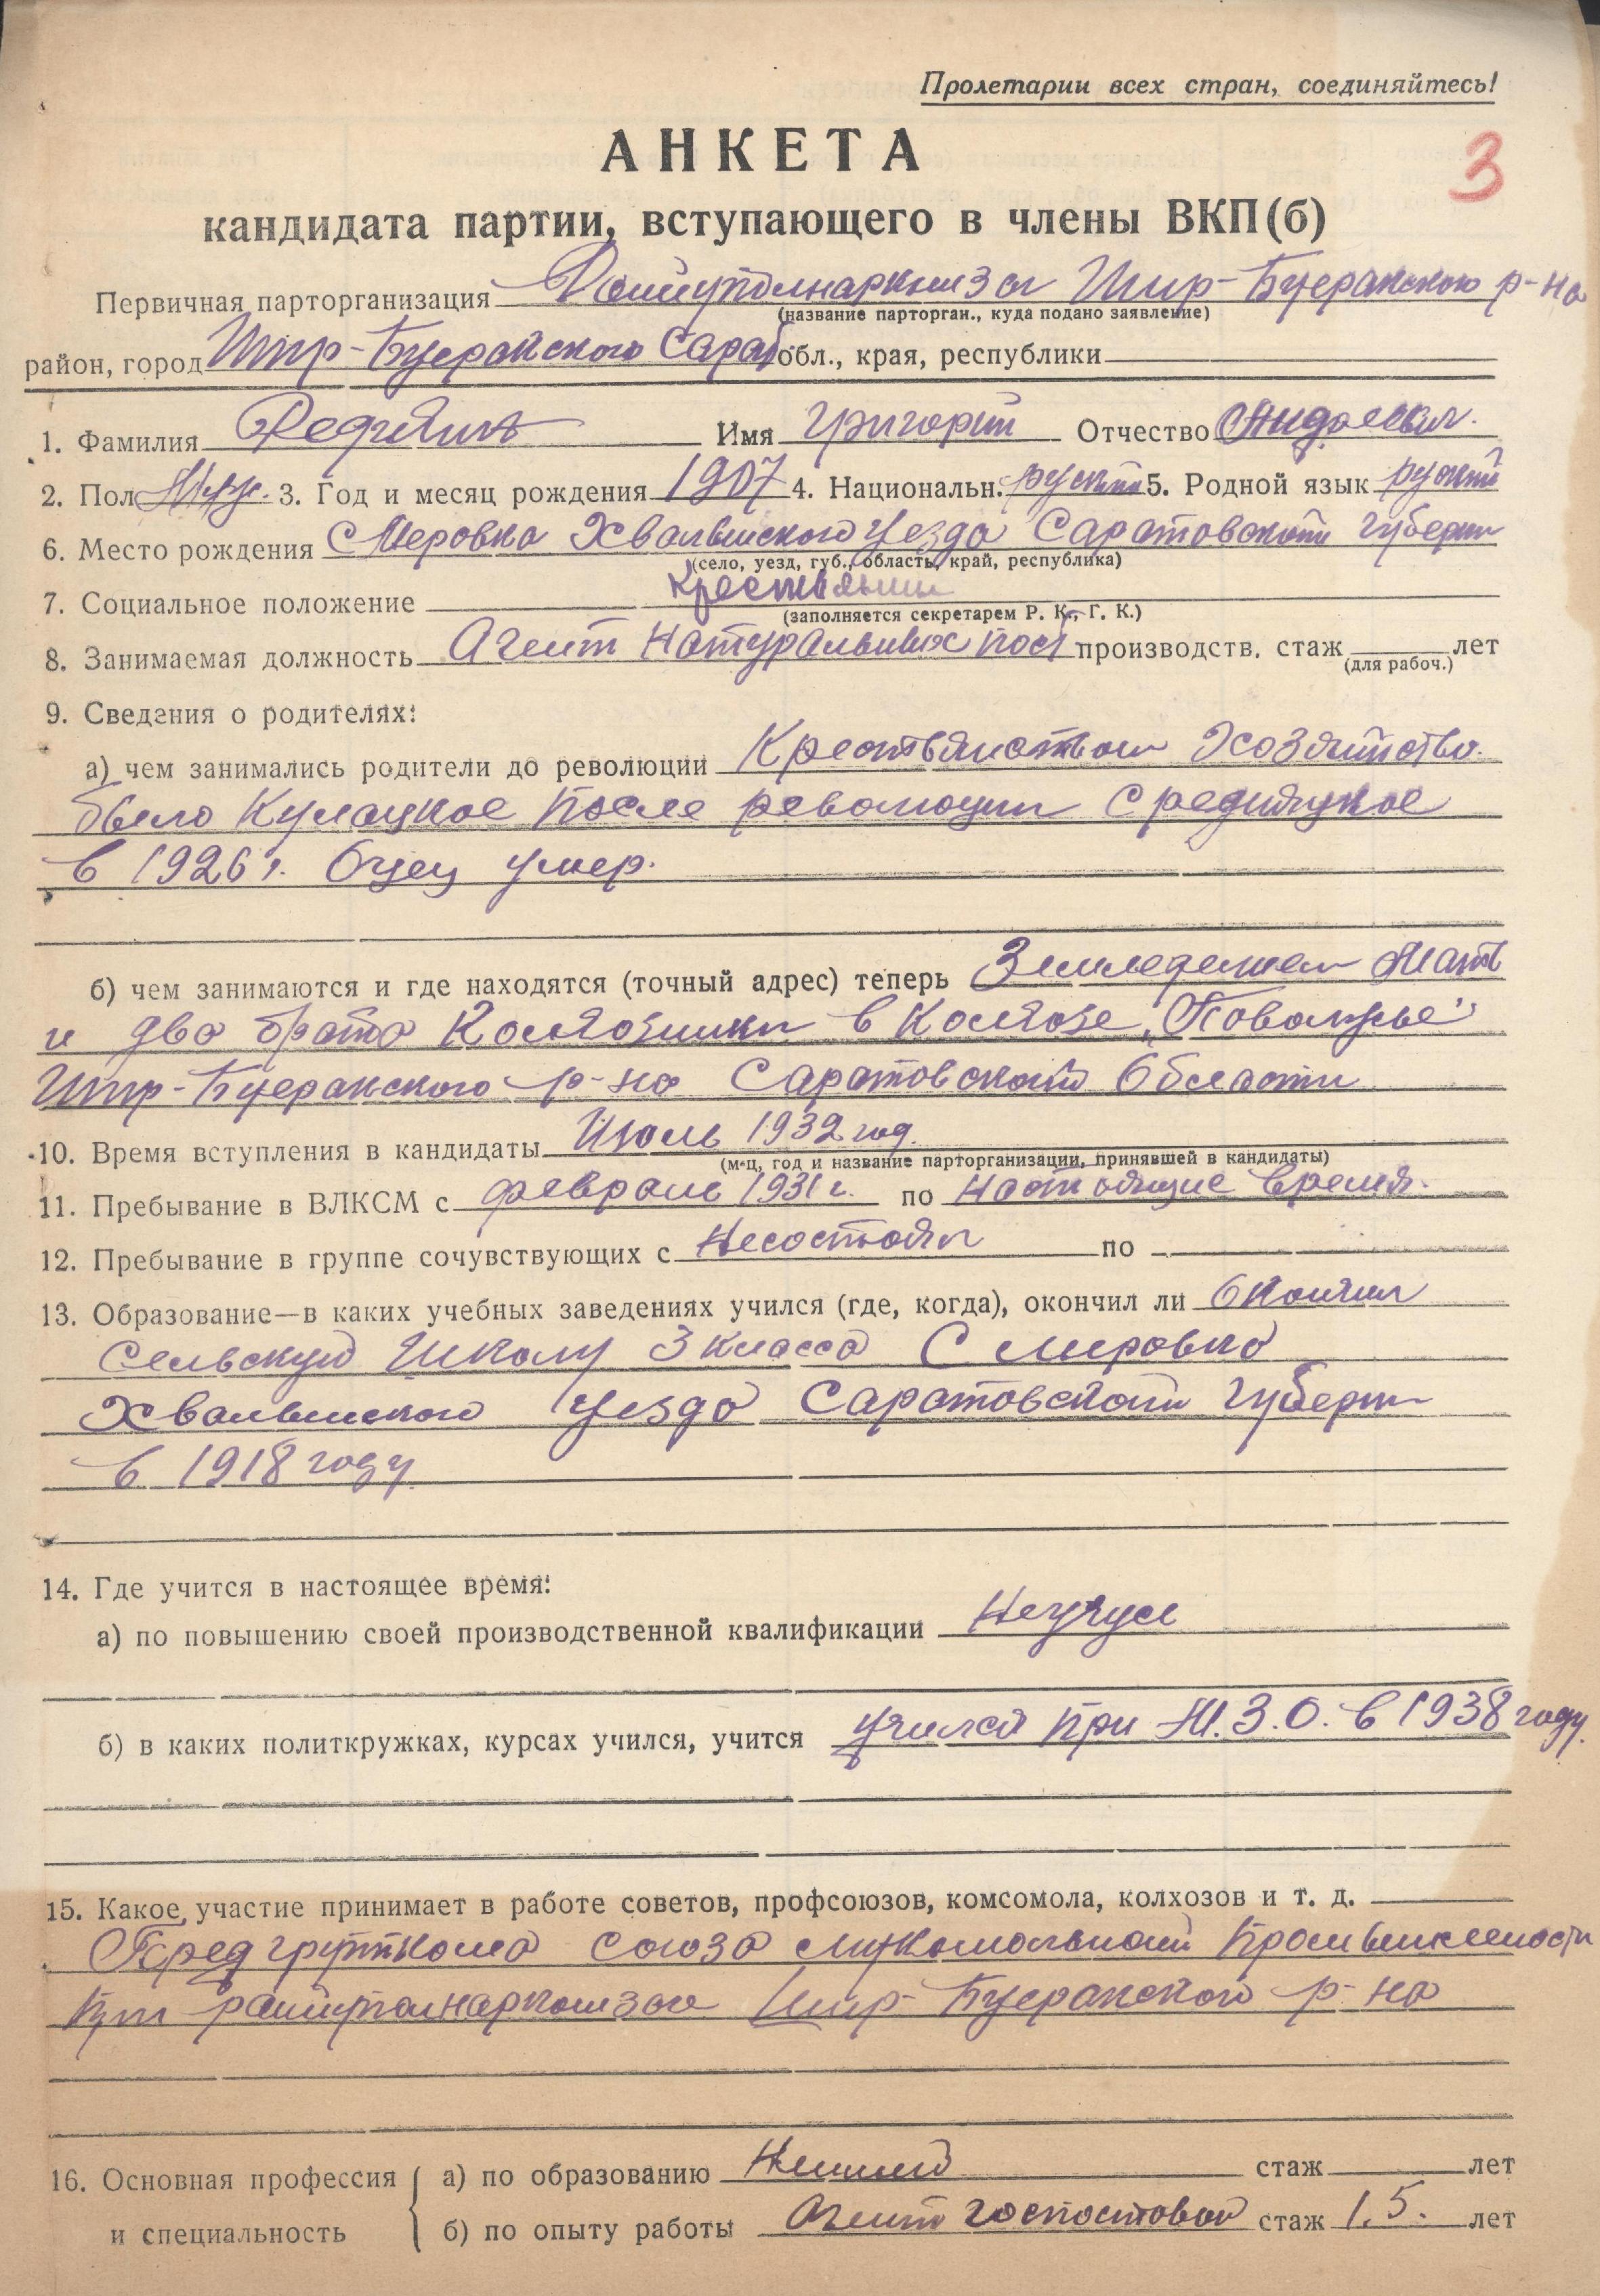 Пролетарии всех стран, соединяйтесь!
АНКЕТА
3
кандидата партии, вступающего в члены ВКП(б)
Первичная парторганизация Райуполнаркомзаг Шир-Буеракского р-на
(название парторган., куда подано заявление)
район, город Шир-Буеракского Сарат обл., края, республики
1. Фамилия Имя Григорий Отчество
2. Пол Муж. 3. Год и месяц рождения 1907 4. Национальн. руский 5. Родной язык руский
6. Место рождения С Меровка Хвалынского Уезда Саратовской губерни
(село, уезд, губ., область, край, республика)
7. Социальное положение Крестьянин
(заполняется секретарем Р. К., Г. К.)
8. Занимаемая должность Агент Натуральных пост производств. стаж лет
(для рабоч.)
9. Сведения о родителях:
а) чем занимались родители до революции Крестьянством Хозяйство
было Кулацкое после революции Средняцкое
в 1926 г. Отец умер.
б) чем занимаются и где находятся (точный адрес) теперь Земледелием Мать
и два брата Колхозники в Колхозе „Поволжье"
Шир-Буеракского р-на Саратовской Области
10. Время вступления в кандидаты Июль 1932 год.
(м-ц, год и название парторганизации, принявшей в кандидаты)
11. Пребывание в ВЛКСМ с февраль 1931 г. по Настоящие время.
12. Пребывание в группе сочувствующих с Несостоял по —
13. Образование—в каких учебных заведениях учился (где, когда), окончил ли Окончил
Сельскую Школу 3 класса С Меровка
Хвалынского Уезда Саратовской Губерни
в 1918 году
14. Где учится в настоящее время:
а) по повышению своей производственной квалификации Неучусь
б) в каких политкружках, курсах учился, учится учился при М.З.О. в 1938 году.
15. Какое участие принимает в работе советов, профсоюзов, комсомола, колхозов и т. д.
Пред групкома союза мукомольной Промышлености
При райуполнаркомзаг Шир-Буеракского р-на
16. Основная профессия и специальность { а) по образованию стаж лет
б) по опыту работы Агент госпоставок стаж 1.5. лет